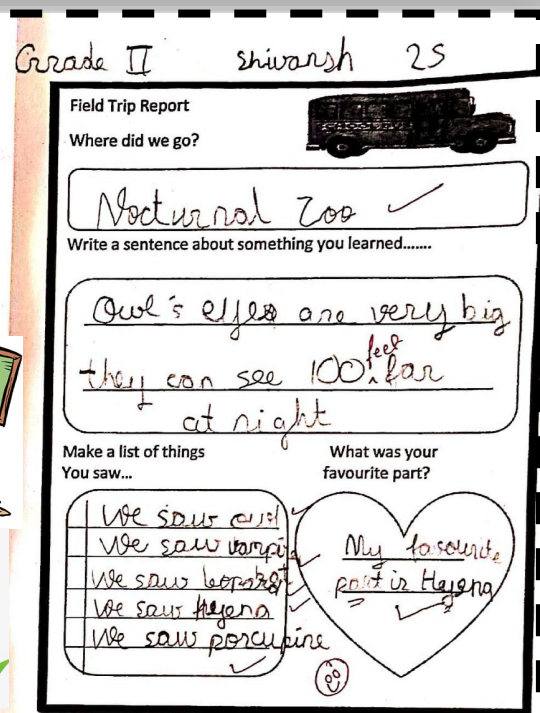 Grade II Shivansh 2S
Field Trip Report
Where did we go?
Nocturnal Zoo
Write a sentence about something you learned.......
Owl's eyes are very big
they can see 100 feet far
at night
Make a list of things
You saw...
What was your
favourite part?
We saw owl
We saw vampire
We saw leopard
We saw hyena
We saw porcupine
My favourite
part is Heyena